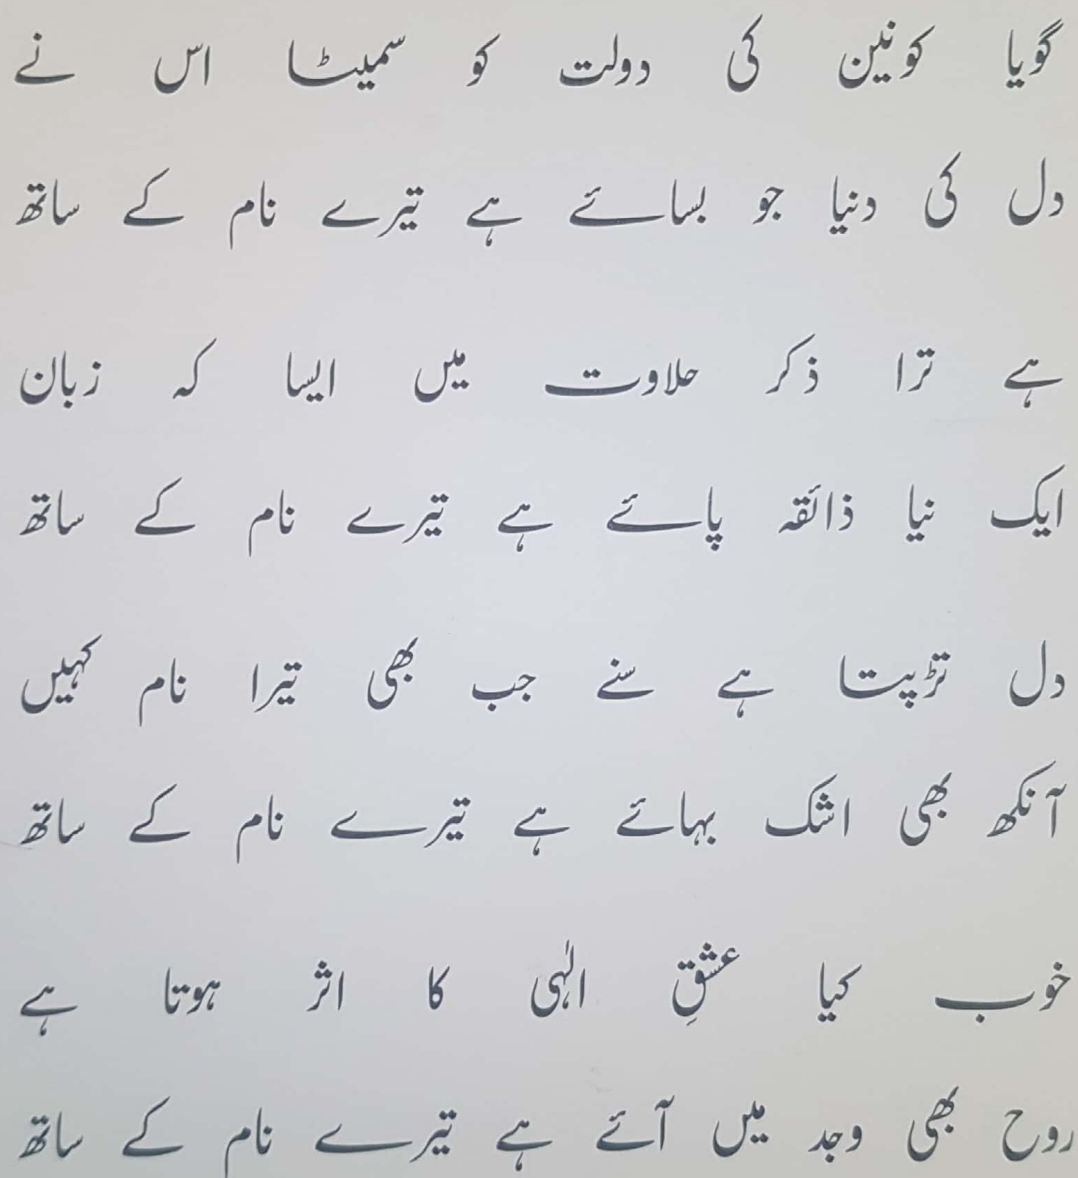 گویا کونین کی دولت کو سمیٹا اس نے
دل کی دنیا جو بسائے ہے تیرے نام کے ساتھ
ہے ترا ذکر حلاوت میں ایسا کہ زبان
ایک نیا ذائقہ پائے ہے تیرے نام کے ساتھ
دل تڑپتا ہے سنے جب بھی تیرا نام کہیں
آنکھ بھی اشک بہائے ہے تیرے نام کے ساتھ
خوب کیا عشقِ الٰہی کا اثر ہوتا ہے
روح بھی وجد میں آئے ہے تیرے نام کے ساتھ